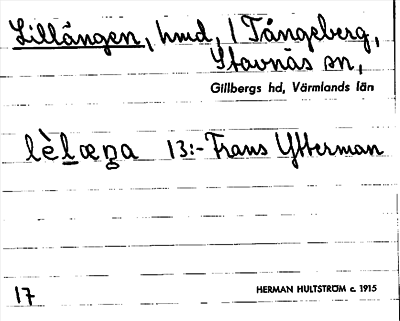 Lillängen, hmd, / Tångeberg,
Stavnäs sn,
Gillbergs hd, Värmlands län
lèlæŋa 13:- Frans Ytterman
17 HERMAN HULTSTRÖM c. 1915